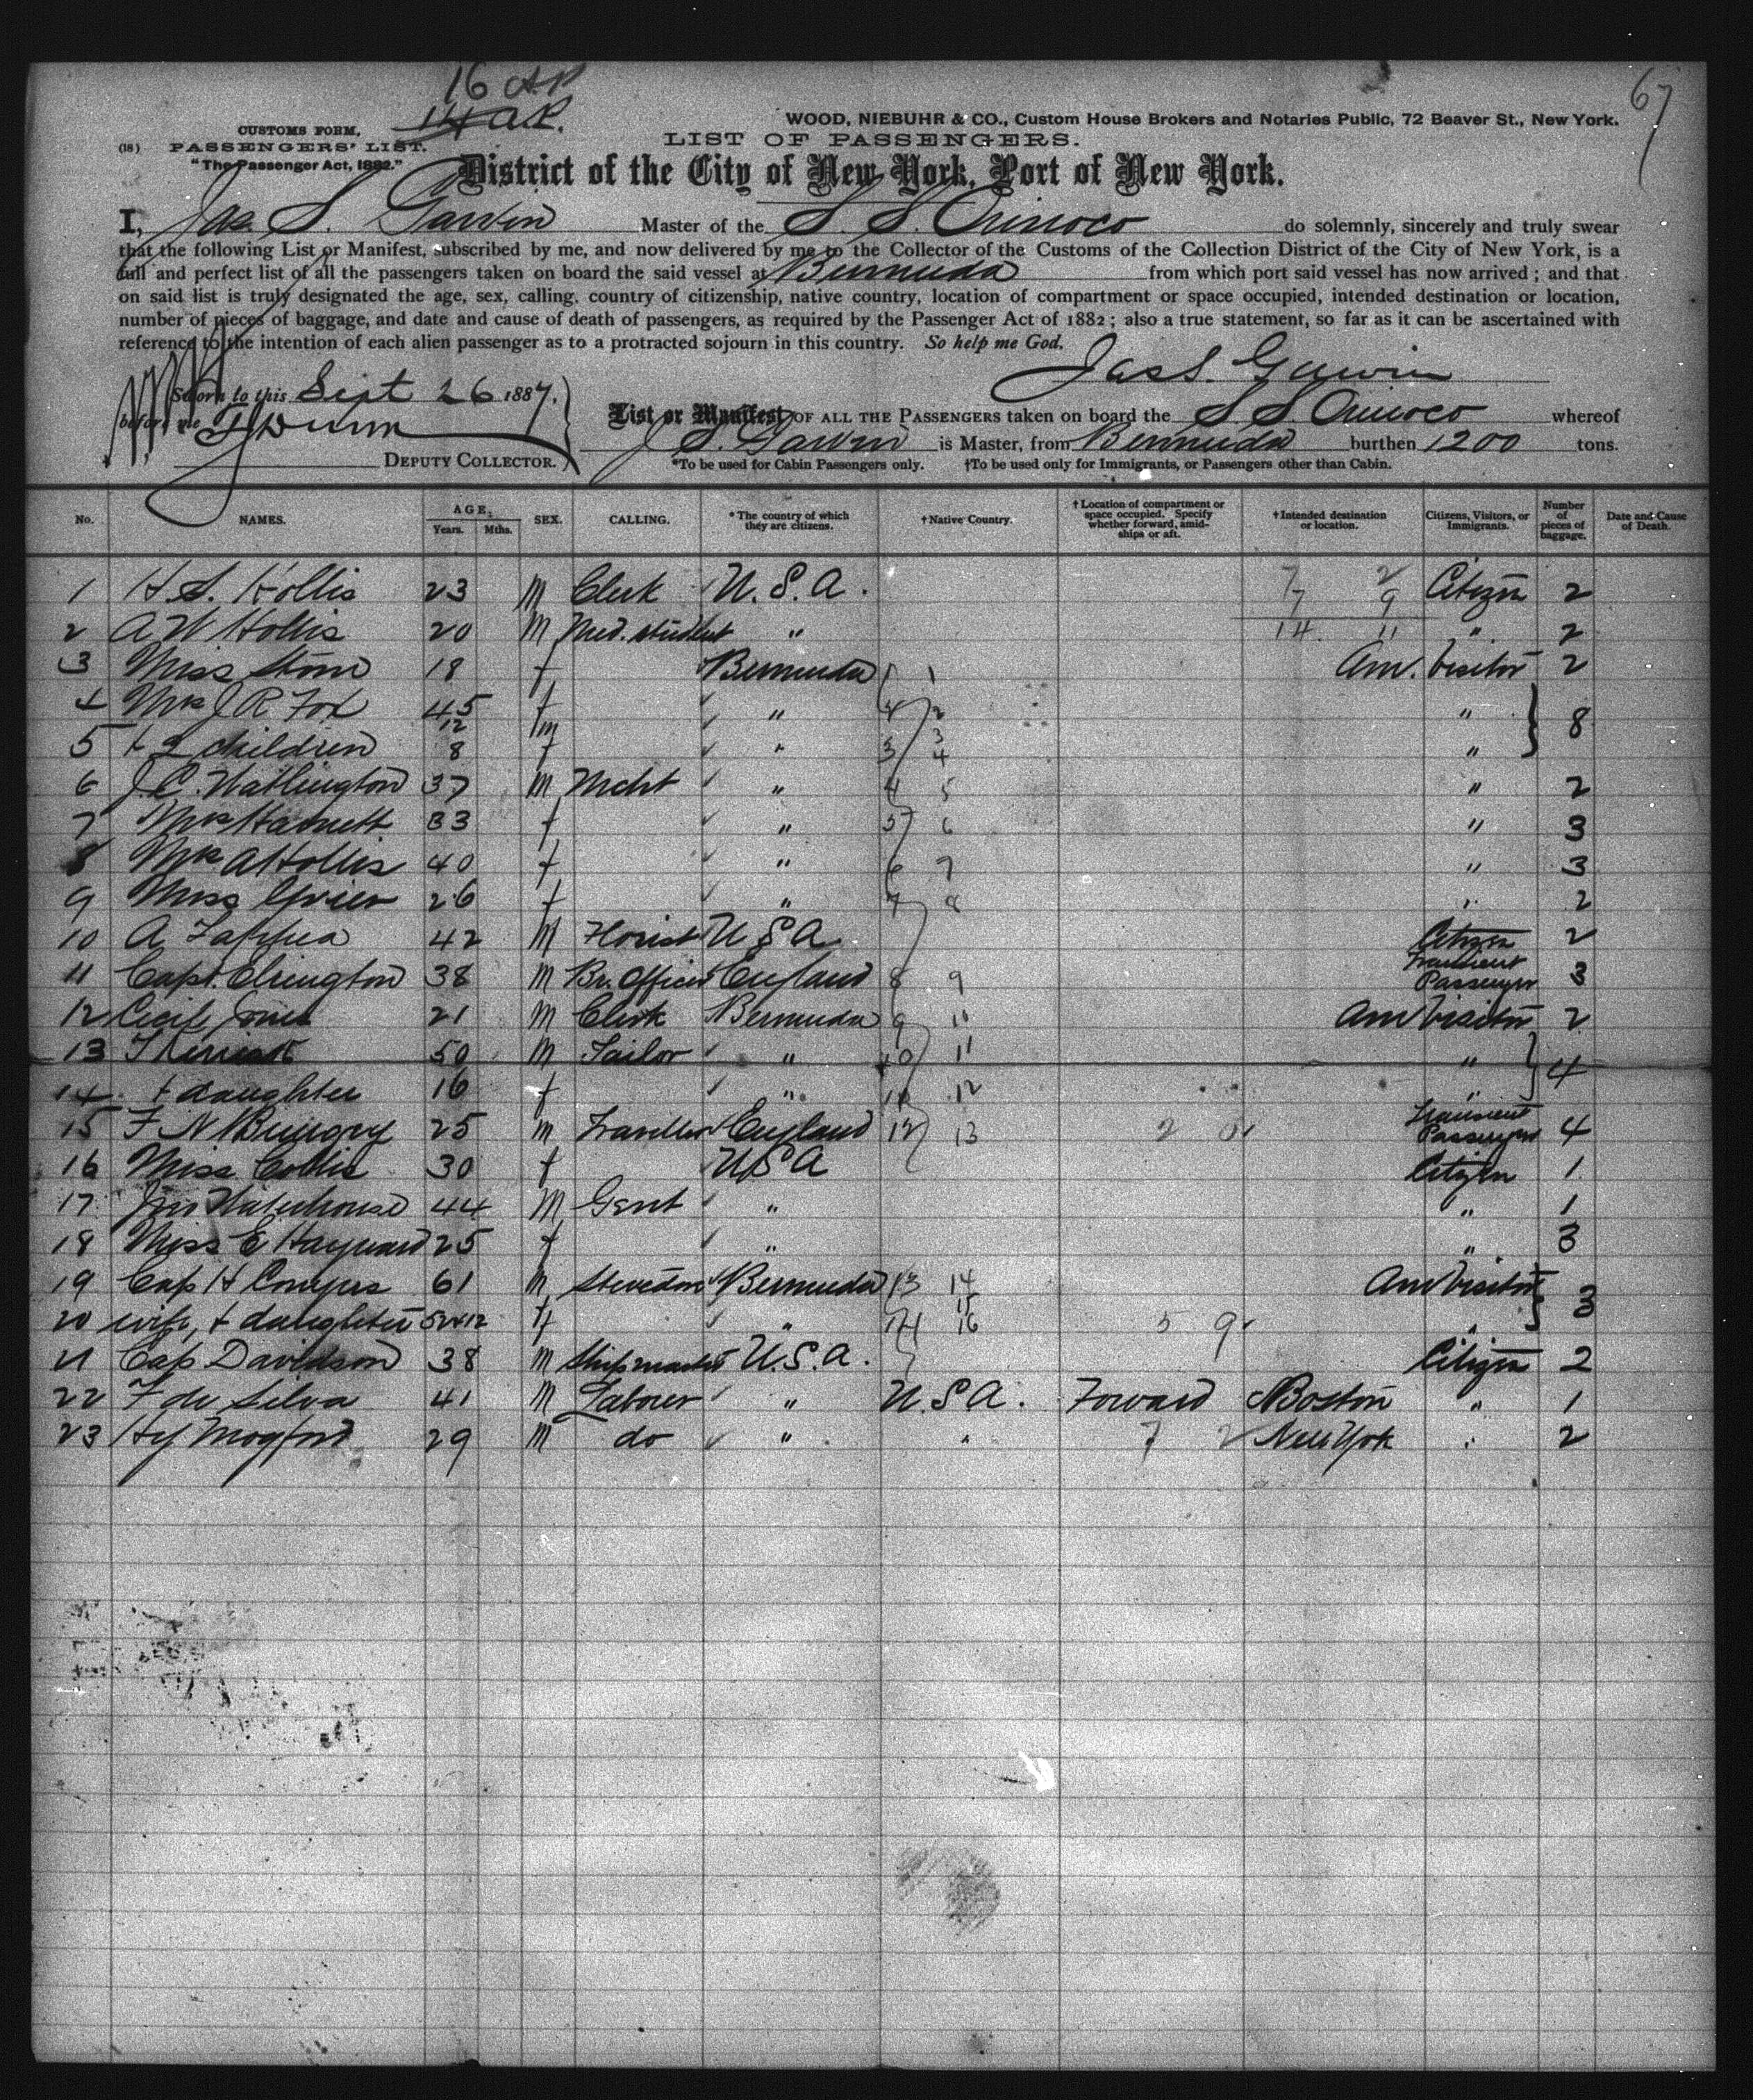 16 AP
14 a.P.
67
CUSTOMS FORM.
WOOD, NIEBUHR & CO., Custom House Brokers and Notaries Public, 72 Beaver St., New York.
(18) PASSENGERS' LIST.
LIST OF PASSENGERS.
"The Passenger Act, 1882."
District of the City of New York, Port of New York.
I, Jas. S. Garvin Master of the S. S. Orinoco do solemnly, sincerely and truly swear
that the following List or Manifest, subscribed by me, and now delivered by me to the Collector of the Customs of the Collection District of the City of New York, is a
full and perfect list of all the passengers taken on board the said vessel at Bermuda from which port said vessel has now arrived; and that
on said list is truly designated the age, sex, calling, country of citizenship, native country, location of compartment or space occupied, intended destination or location,
number of pieces of baggage, and date and cause of death of passengers, as required by the Passenger Act of 1882; also a true statement, so far as it can be ascertained with
reference to the intention of each alien passenger as to a protracted sojourn in this country. So help me God.
Jas S. Garvin
Sworn to this Sept 26 1887.
before me
DEPUTY COLLECTOR.
List or Manifest OF ALL THE PASSENGERS taken on board the S S Orinoco whereof
J S. Garvin is Master, from Bermuda burthen 1200 tons.
*To be used for Cabin Passengers only. †To be used only for Immigrants, or Passengers other than Cabin.
No. NAMES. AGE. Years. Mths. SEX. CALLING. *The country of which they are citizens. †Native Country. †Location of compartment or space occupied. Specify whether forward, amidships or aft. †Intended destination or location. Citizens, Visitors, or Immigrants. Number of pieces of baggage. Date and Cause of Death.
1 H. S. Hollis 23 M Clerk U. S. A. 7 2 7 9 Citizen 2
2 A W Hollis 20 M Med. student " 14 11 " 2
3 Miss Stone 18 f Bermuda 1 1 Am. Visitor 2
4 Mrs J R Fox 45 f " 2 " 8
5 + 2 children 12 8 m f " 3 3 4 "
6 J. C. Watlington 37 M Mcht " 4 5 " 2
7 Mrs Harnett 33 f " 5 6 " 3
8 Mrs A Hollis 40 f " 6 7 " 3
9 Miss Grier 26 f " 7 8 " 2
10 A 42 M Florist U S A Citizen 2
11 Capt. Elrington 38 M Br. Officer England 8 9 Transient Passenger 3
12 Cecil Jones 21 M Clerk Bermuda 9 10 Am Visitor 2
13 50 M Tailor " 10 11 " 4
14 + daughter 16 f " 11 12 "
15 F N 25 m Traveller England 12 13 2 Transient Passenger 4
16 Miss Collis 30 f U S A Citizen 1
17 Jno Waterhouse 44 M Gent " " 1
18 Miss E Hayward 25 f " " 3
19 Cap H Conyers 61 M Stevedore Bermuda 13 14 Am Visitor 3
20 wife, + daughter 52 + 12 f f " 14 15 16 5 9 "
21 Cap Davidson 38 M Shipmaster U. S. A. Citizen 2
22 F de Silva 41 M Laborer " U. S A. Forward Boston " 1
23 Hy Mogford 29 m do " " 7 2 New York " 2